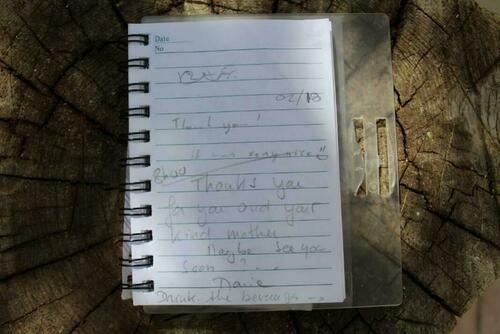 Date
No
02/18
Thank you!
it was very nice
Thanks you
for you and your
kind mother
Maybe see you
soon ? ...
Drink the beverage